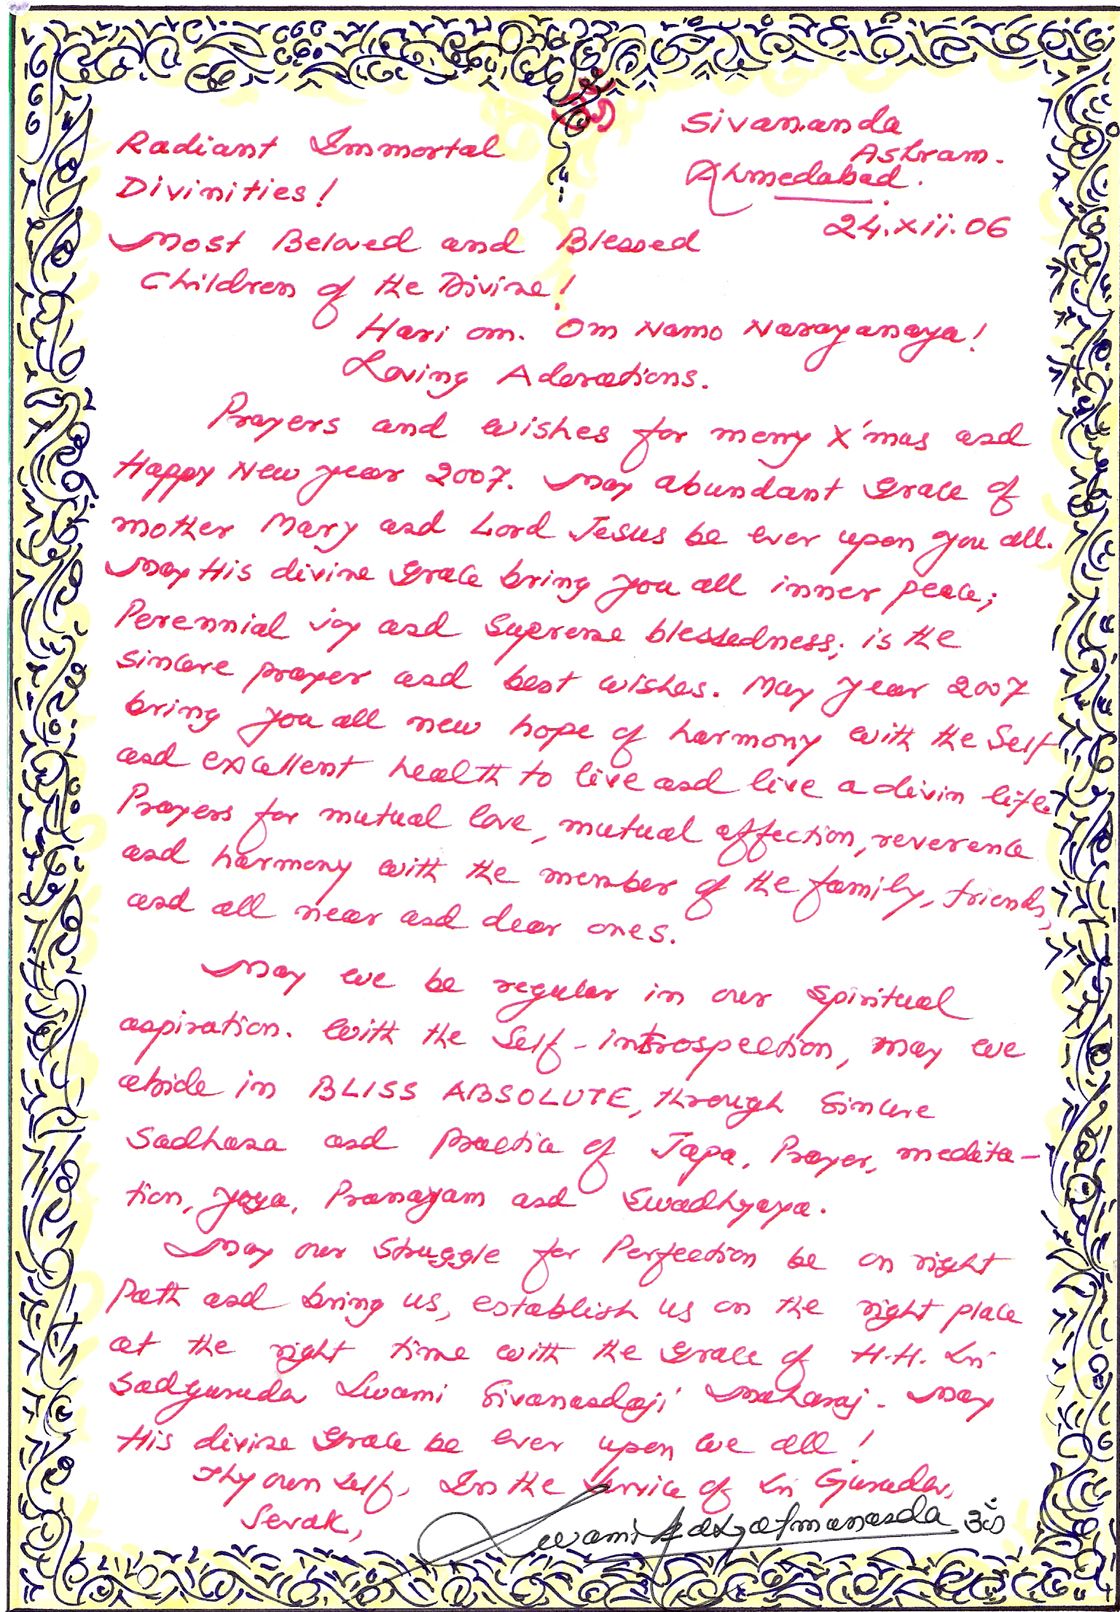 ॐ
Sivananda
Ashram.
Ahmedabad.
24.xii.06
Radiant Immortal
Divinities!
Most Beloved and Blessed
Children of the Divine!
Hari om. Om Namo Narayanaya!
Loving Adorations.
Prayers and wishes for merry X'mas and
Happy New year 2007. May abundant Grace of
mother Mary and Lord Jesus be ever upon you all.
May His divine Grace bring you all inner peace;
Perennial joy and Supreme blessedness; is the
sincere prayer and best wishes. May year 2007
bring you all new hope of harmony with the Self
and excellent health to live and live a divin life
Prayers for mutual love, mutual affection, reverence
and harmony with the member of the family, friends,
and all near and dear ones.
May we be regular in our spiritual
aspiration. With the Self-introspection, may we
abide in BLISS ABSOLUTE, through Sincere
Sadhana and practice of Japa, Prayer, medita-
tion, yoga, Pranayam and Swadhyaya.
May our Struggle for Perfection be on right
Path and bring us, establish us on the right place
at the right time with the Grace of H.H. Sri
Sadgurudev Swami Sivanandaji Maharaj. May
His divine Grace be ever upon we all!
Thy own Self, In the Service of Sri Gurudev,
Sevak,
Swami Adhyatmananda ॐ